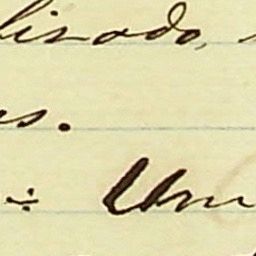 lisado,
es.
÷ Um